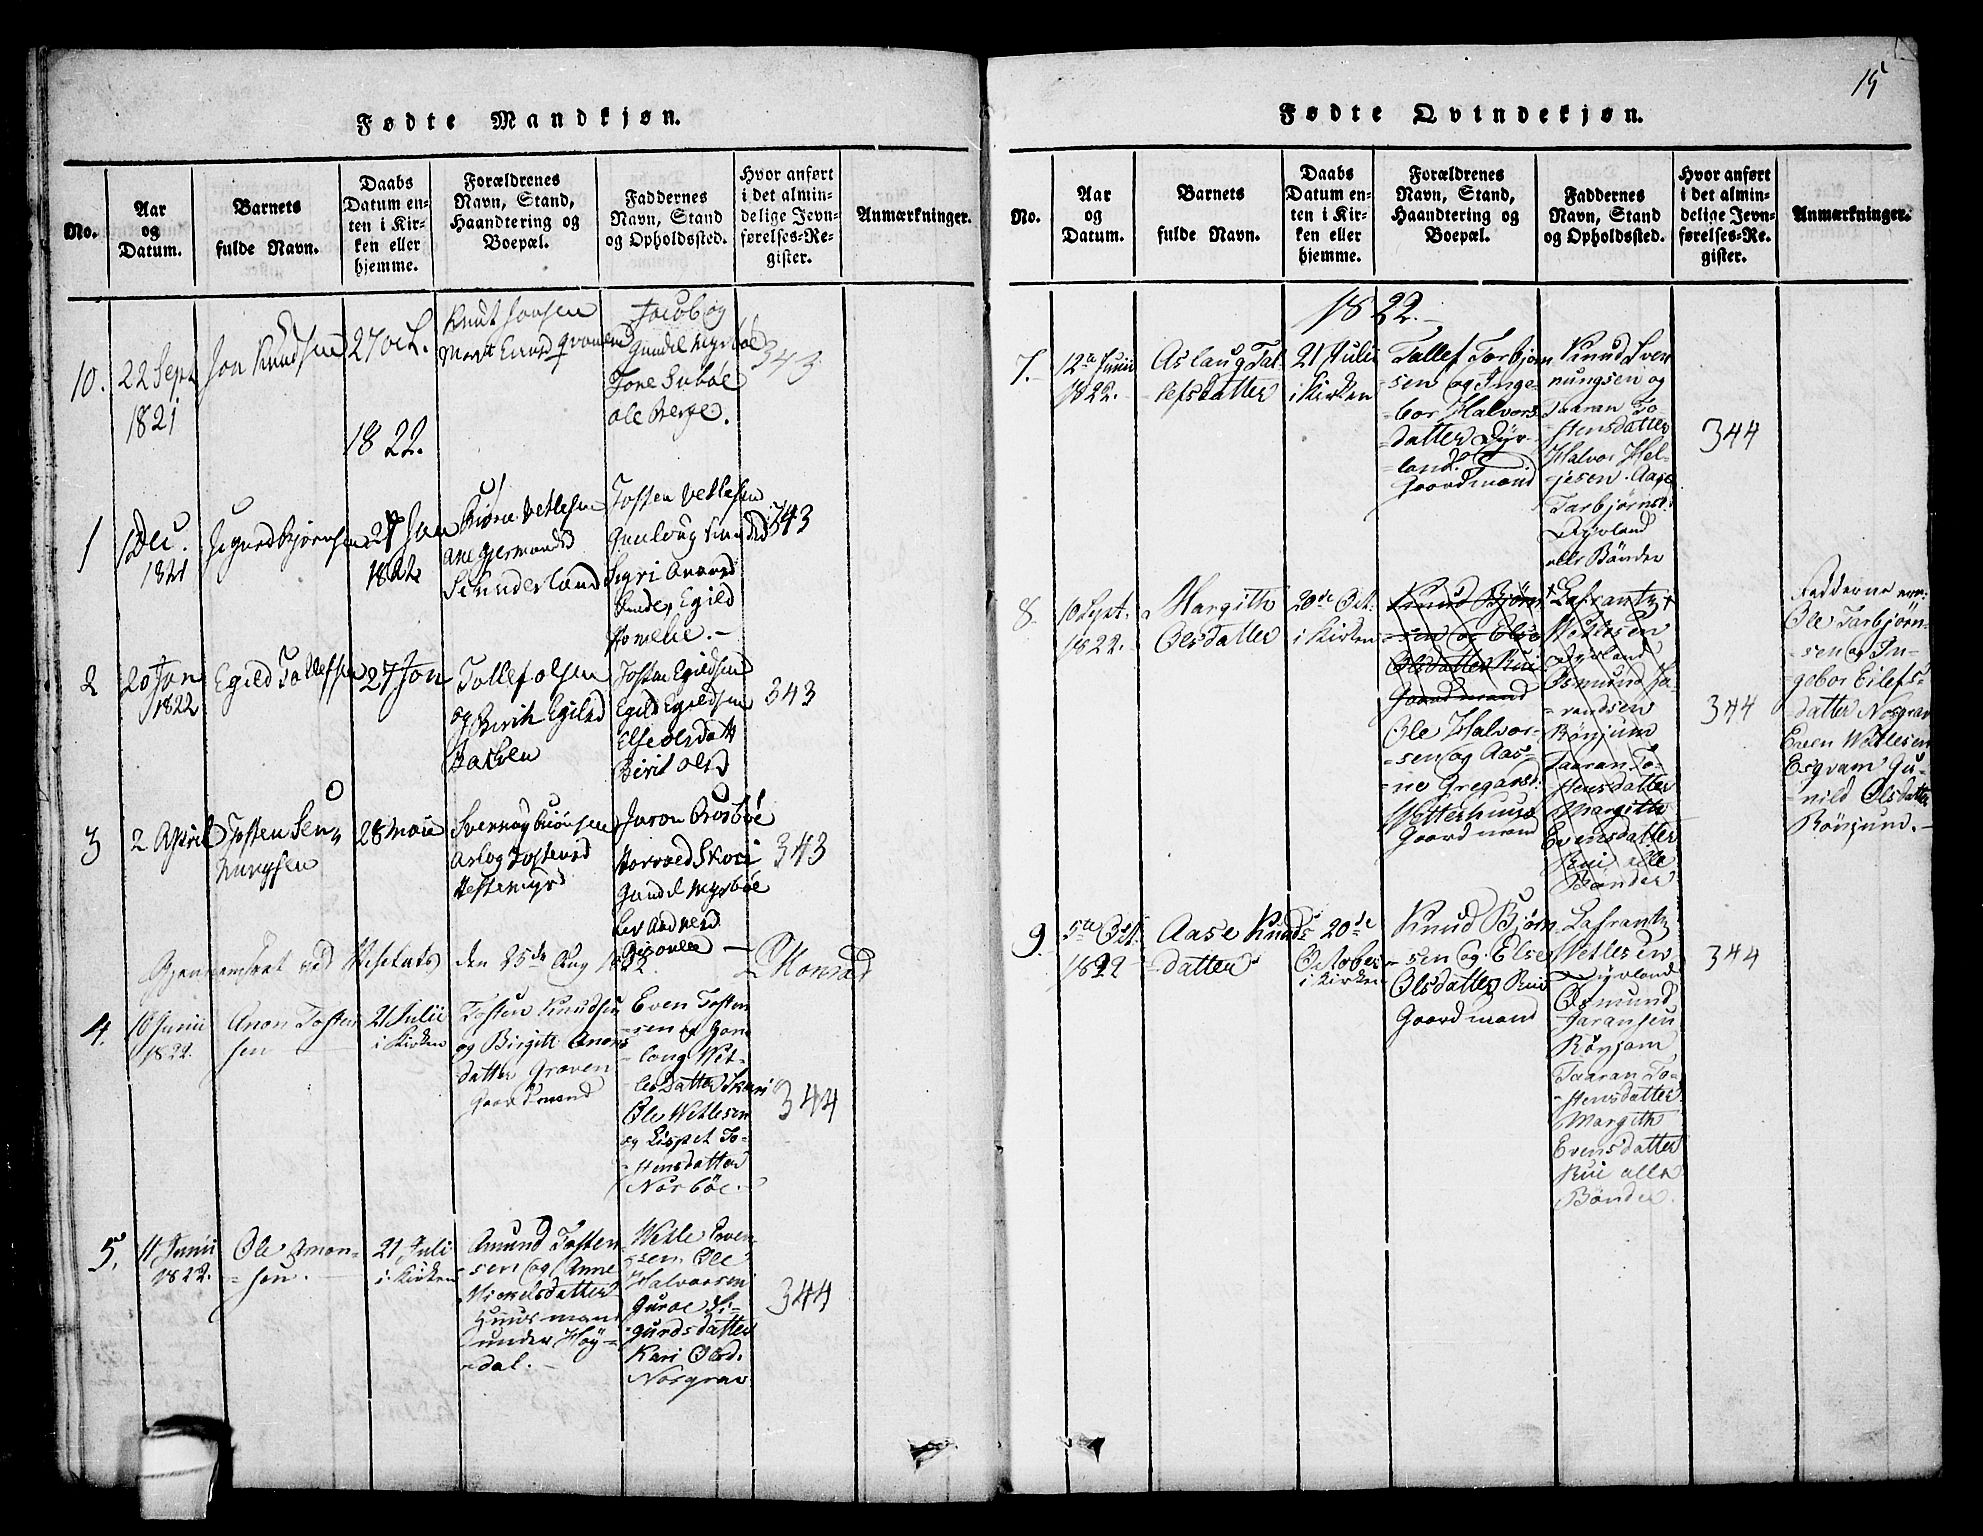 15
Fødte Mandkjøn.
No.
Aar
og
Datum.
Barnets
fulde Navn.
Daabs
Datum en-
ten i Kir-
ken eller
hjemme.
Forældrenes
Navn, Stand,
Haandtering og
Boepæl.
Faddernes
Navn, Stand
og Opholdssted.
Hvor anført
i det almin-
delige Jevn-
førelses-Re-
gister.
Anmærkninger.
10.
22 Sept
1821
Jon Knudsen
27 Oct.
Knut Jonsen
Marit
Jacob og
Gundel Myrbøe
Tone
Ole Berge.
343
1822.
1
1 Dec.
1821
Sigurd Bjørnsen
27 Jan
1822
Bjørn Vetlesen
Ane
Tosten Vetlesen
Gunloug
Sigri
Egild
343
2
20 Jan
1822
Egild Tollefsen
27 Jan
Tollef Olsen
og Birit Egilsd
Bakken
Tosten Egildsen
Egild Egildsen
Else Olsdatt
Birit Olsd
343
3
2 April
Tosten Sen-
nungsen
28 Maie
Aslog Tostensd
Gundel Myrbøe
343
Gjennemseet ved Visitats den 25de Aug 1822.
4.
10 Junii
1822.
Anon Tosten
sen
21 Julii
i Kirken
Tosten Knudsen
og Birgitt Anons
datter Graven
Gaardmand
Even Tosten
sen og Gon
loug Wet-
lesdatter Skori
Ole Wetlesen
og Lispet To-
stensdatter
Norbøe.
344
5.
11 Junii
1822.
Ole Amon-
sen.
21 Juli
i Kirken
Amund Tosten
sen og Anne
Nickelsdatter
Huusmand
under Høy-
dal.
Wetle Even-
sen Ole
Halvorsen
Guroe Si-
gurdsdatter
Kari Olsd.
Norgrav
344
Fødte Qvindekjøn.
No.
Aar
og
Datum.
Barnets
fulde Navn.
Daabs
Datum en-
ten i Kir-
ken eller
hjemme.
Forældrenes
Navn, Stand,
Haandtering og
Boepæl.
Faddernes
Navn, Stand
og Opholdssted.
Hvor anført
i det almin-
delige Jevn-
førelses-Re-
gister.
Anmærkninger.
1822.
7.
12te Junii
1822.
Aslaug Tal-
lefsdatter
21 Julii
i Kirken
Tallef Torbjørn
sen og Inge-
bor Halvors
datter Dyr-
land
Gaardmand
Knud Sven
nungsen og
Taaran To-
stensdatter
Halvor Hel-
jesen. Aase
Tarbjørnsd.
Dyrland
alle Bønder
344
8.
10 Sept.
1822.
Margith
Olsdatter
20de Oct.
i Kirken
Knud Bjørn
sen og Else
Olsdatter Rui
Gaardmand
Ole Halvor-
sen og Aas-
ne Gregarsd.
Wetterhuus
Gaardmand
Lafrantz
Wetlesen
Dyrland
Osmund Ja-
randsen
Rønjum
Taaran To-
stensdatter
Margith
Evensdatter
Rui alle
Bønder
344
Fadderne ere:
Ole Tarbjørn-
sen og In-
gebor Eilefs-
datter Norgrav
Even Wetlesen
Esqvam Gu-
nild Olsdatter
Rønjum.
9.
5te Oct.
1822
Aase Knuds
datter
20de
October
i Kirken
Knud Bjørn
sen og Else
Olsdatter Rui
Gaardmand
Lafrantz
Wetlesen
Dyrland
Osmund
Jaransen
Rønjom
Taaran To-
stensdatter
Margith
Evensdatter
Rui alle
Bønder.
344